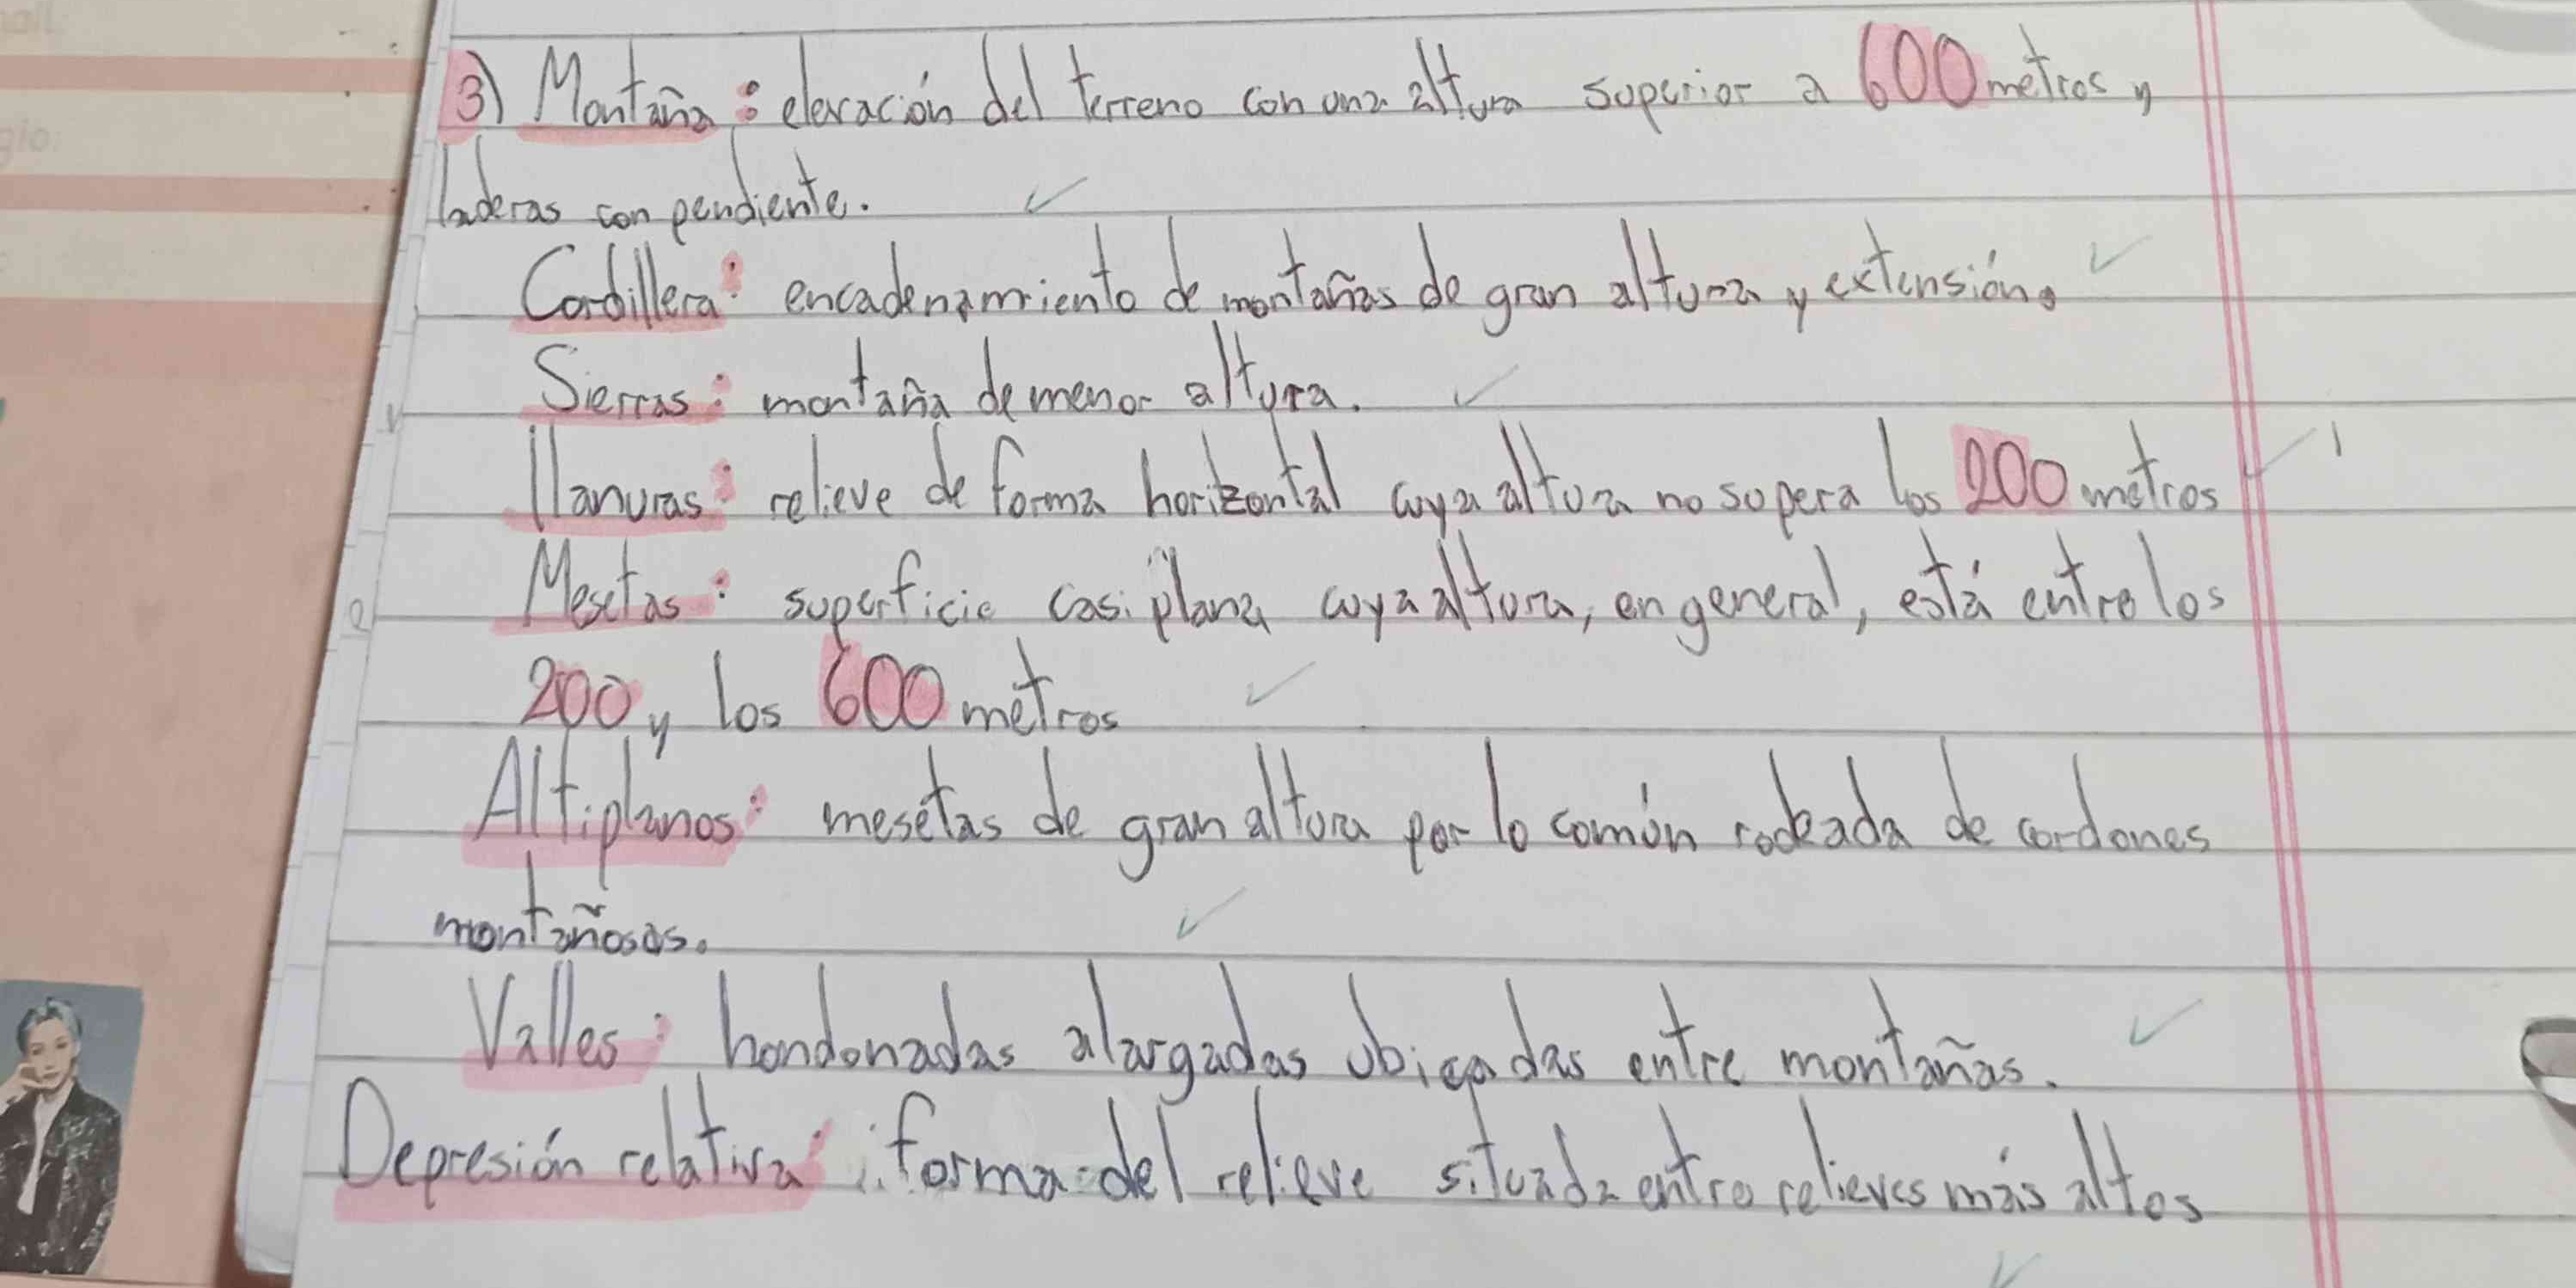 3) Montaña: elevación del terreno con una altura superior a 600 metros y
laderas con pendiente.
Cordillera: encadenamiento de montañas de gran altura y extensión.
Sierras: montaña de menor altura.
llanuras: relieve de forma horizontal cuya altura no supera los 200 metros
Mesetas: superficie casi plana cuya altura, en general, está entre los
200 y los 600 metros
Altiplanos: mesetas de gran altura por lo común rodeada de cordones
montañosos.
Valles: hondonadas alargadas ubicadas entre montañas.
Depresión relativa: forma del relieve situada entre relieves más altos